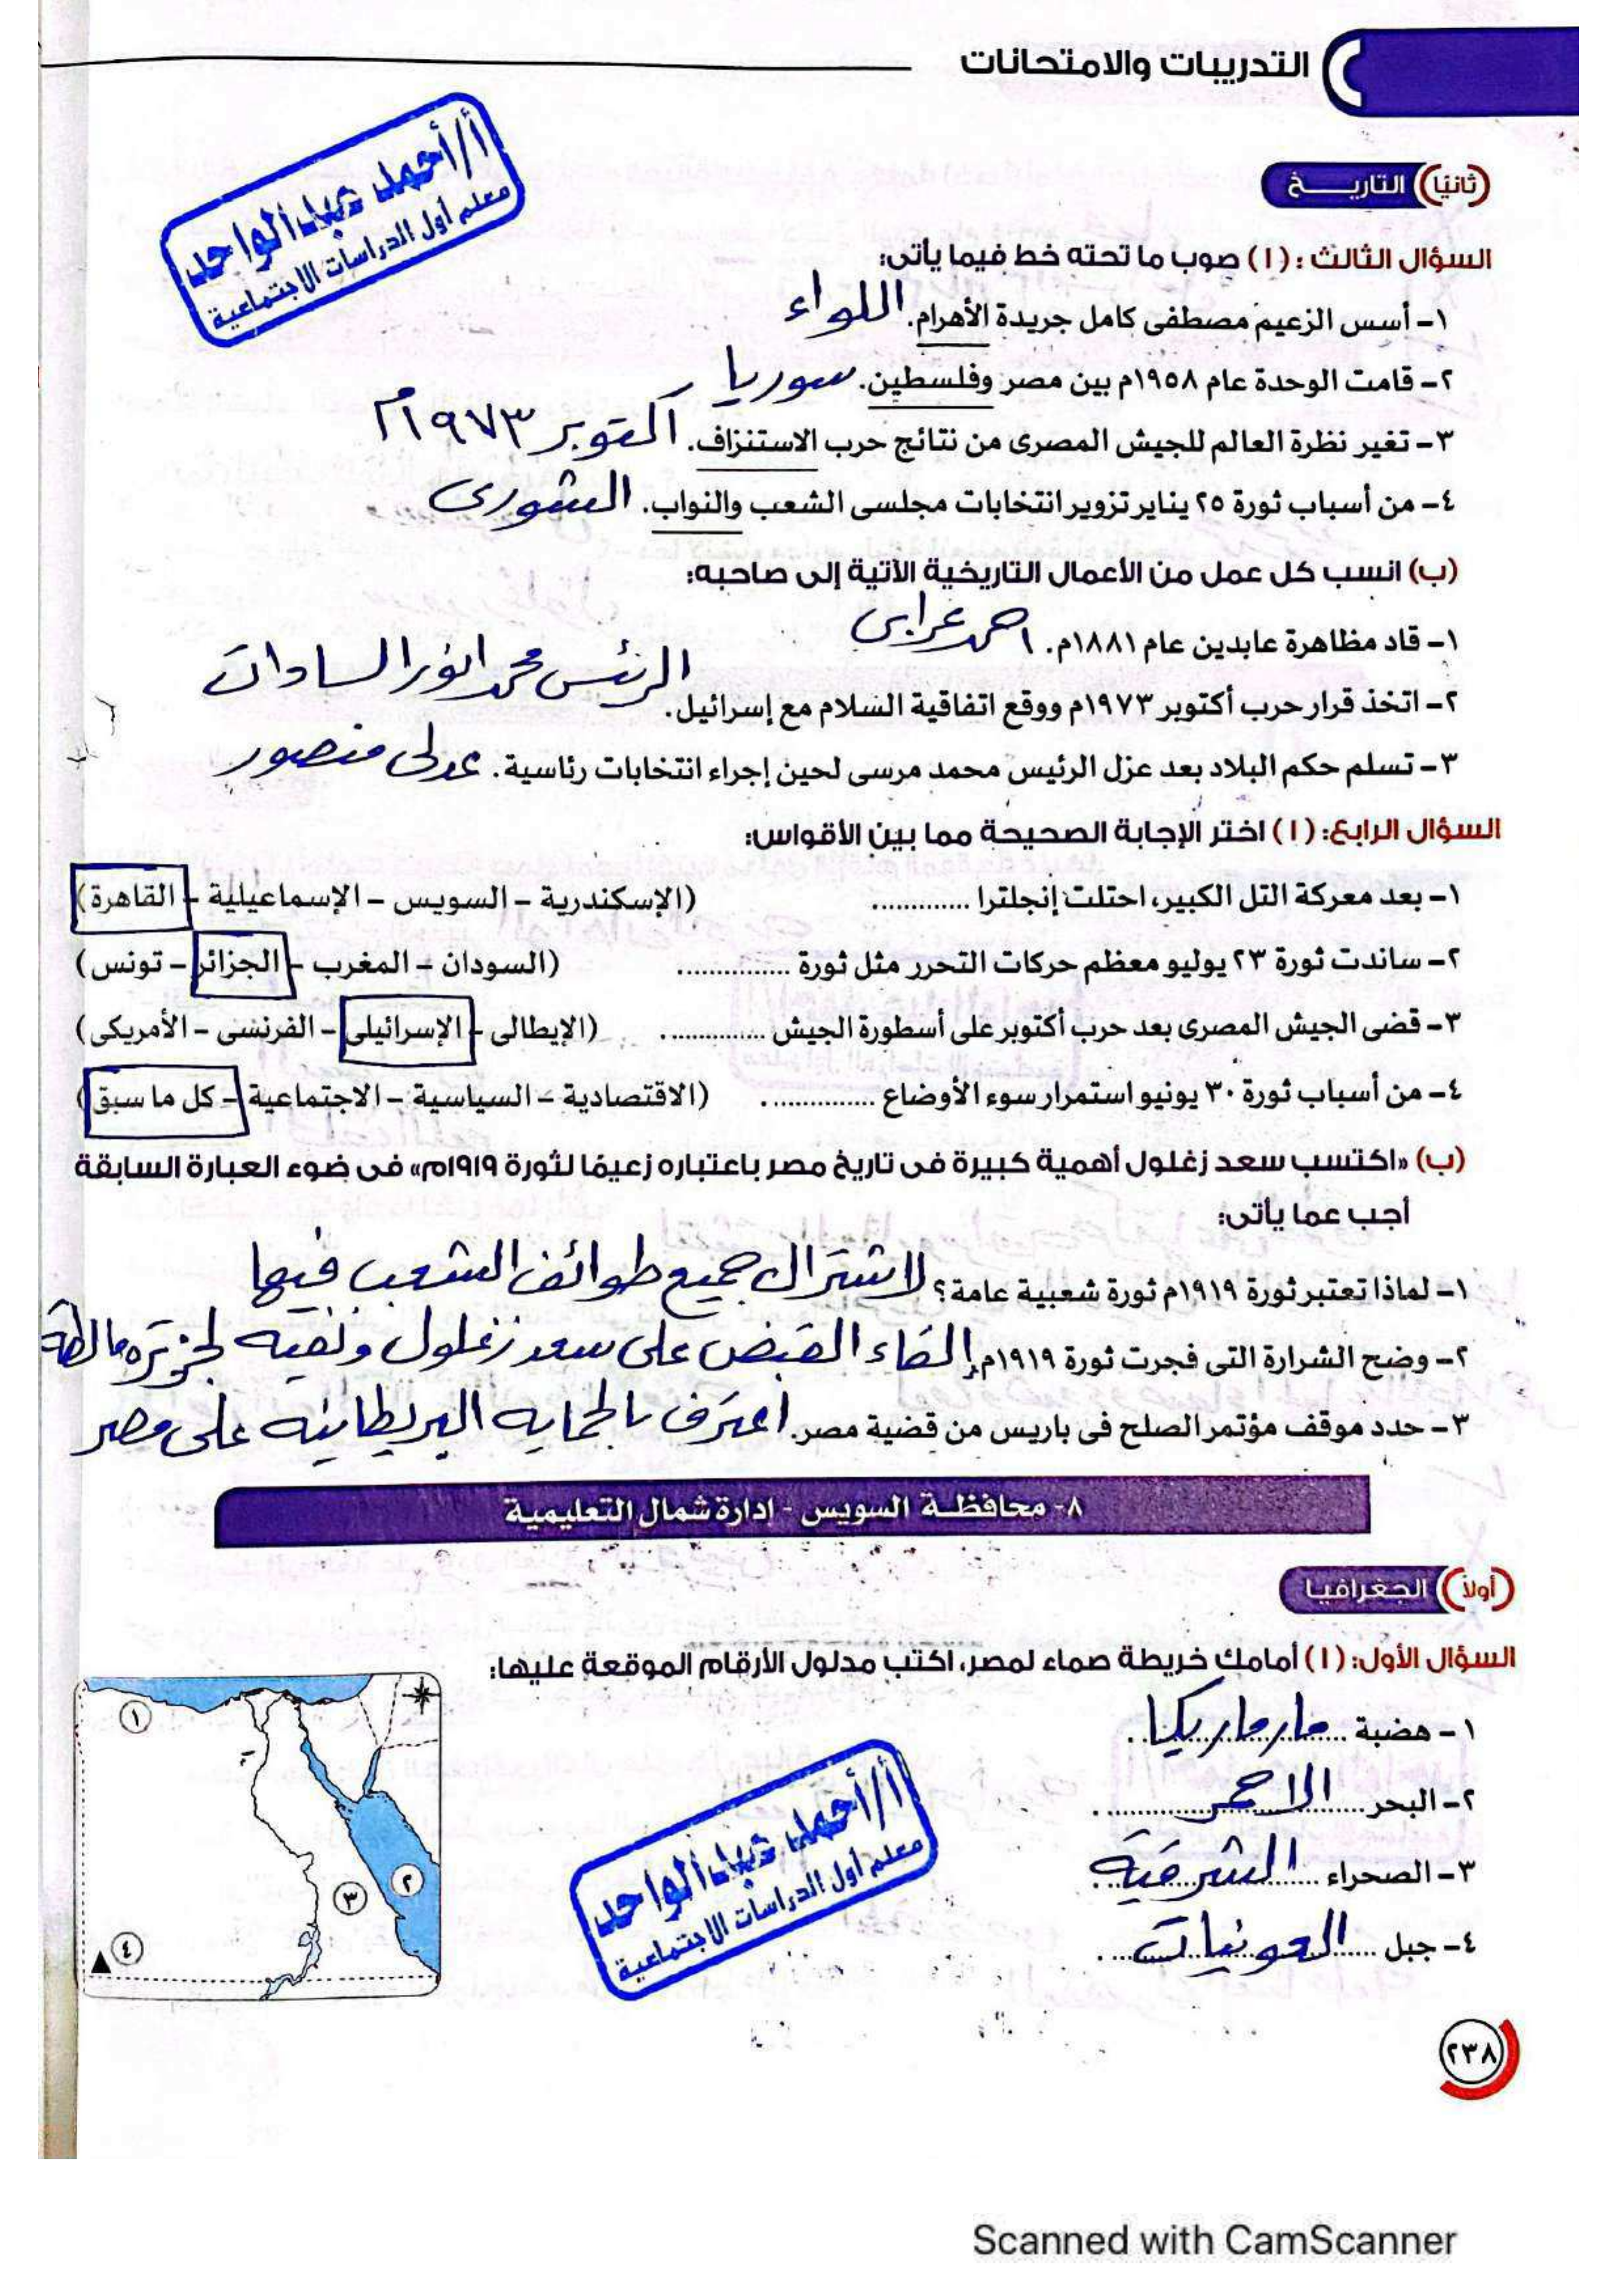 التدريبات والامتحانات
أ/أحمد عبد الواحد
معلم أول الدراسات الاجتماعية
(ثانيًا) التاريخ
السؤال الثالث : (١) صوب ما تحته خط فيما يأتى:
١- أسس الزعيم مصطفى كامل جريدة الأهرام. اللواء
٢- قامت الوحدة عام ١٩٥٨م بين مصر وفلسطين. سوريا
٣- تغير نظرة العالم للجيش المصرى من نتائج حرب الاستنزاف. أكتوبر ١٩٧٣م
٤- من أسباب ثورة ٢٥ يناير تزوير انتخابات مجلسى الشعب والنواب. الشورى
(ب) انسب كل عمل من الأعمال التاريخية الآتية إلى صاحبه:
١- قاد مظاهرة عابدين عام ١٨٨١م. احمد عرابى
٢- اتخذ قرار حرب أكتوبر ١٩٧٣م ووقع اتفاقية السلام مع إسرائيل. الرئيس محمد انور السادات
٣- تسلم حكم البلاد بعد عزل الرئيس محمد مرسى لحين إجراء انتخابات رئاسية. عدلى منصور
السؤال الرابع: (١) اختر الإجابة الصحيحة مما بين الأقواس:
١- بعد معركة التل الكبير، احتلت إنجلترا ............. (الإسكندرية - السويس - الإسماعيلية - القاهرة)
٢- ساندت ثورة ٢٣ يوليو معظم حركات التحرر مثل ثورة ............... (السودان - المغرب - الجزائر - تونس)
٣- قضى الجيش المصرى بعد حرب أكتوبر على أسطورة الجيش .............. (الإيطالى - الإسرائيلى - الفرنسى - الأمريكى)
٤- من أسباب ثورة ٣٠ يونيو استمرار سوء الأوضاع ............... (الاقتصادية - السياسية - الاجتماعية - كل ما سبق)
(ب) «اكتسب سعد زغلول أهمية كبيرة فى تاريخ مصر باعتباره زعيمًا لثورة ١٩١٩م» فى ضوء العبارة السابقة
أجب عما يأتى:
١- لماذا تعتبر ثورة ١٩١٩م ثورة شعبية عامة؟ لاشتراك جميع طوائف الشعب فيها
٢- وضح الشرارة التى فجرت ثورة ١٩١٩م. إلقاء القبض على سعد زغلول ونفيه لجزيرة مالطة
٣- حدد موقف مؤتمر الصلح فى باريس من قضية مصر. اعترف بالحمايه البريطانيه على مصر
٨- محافظة السويس - إدارة شمال التعليمية
(أولاً) الجغرافيا
السؤال الأول: (١) أمامك خريطة صماء لمصر، اكتب مدلول الأرقام الموقعة عليها:
١- هضبة مارماريكا
٢- البحر الاحمر
٣- الصحراء الشرقية
٤- جبل العوينات
١
٢
٣
٤
أ/أحمد عبد الواحد
معلم أول الدراسات الاجتماعية
٢٣٨
Scanned with CamScanner